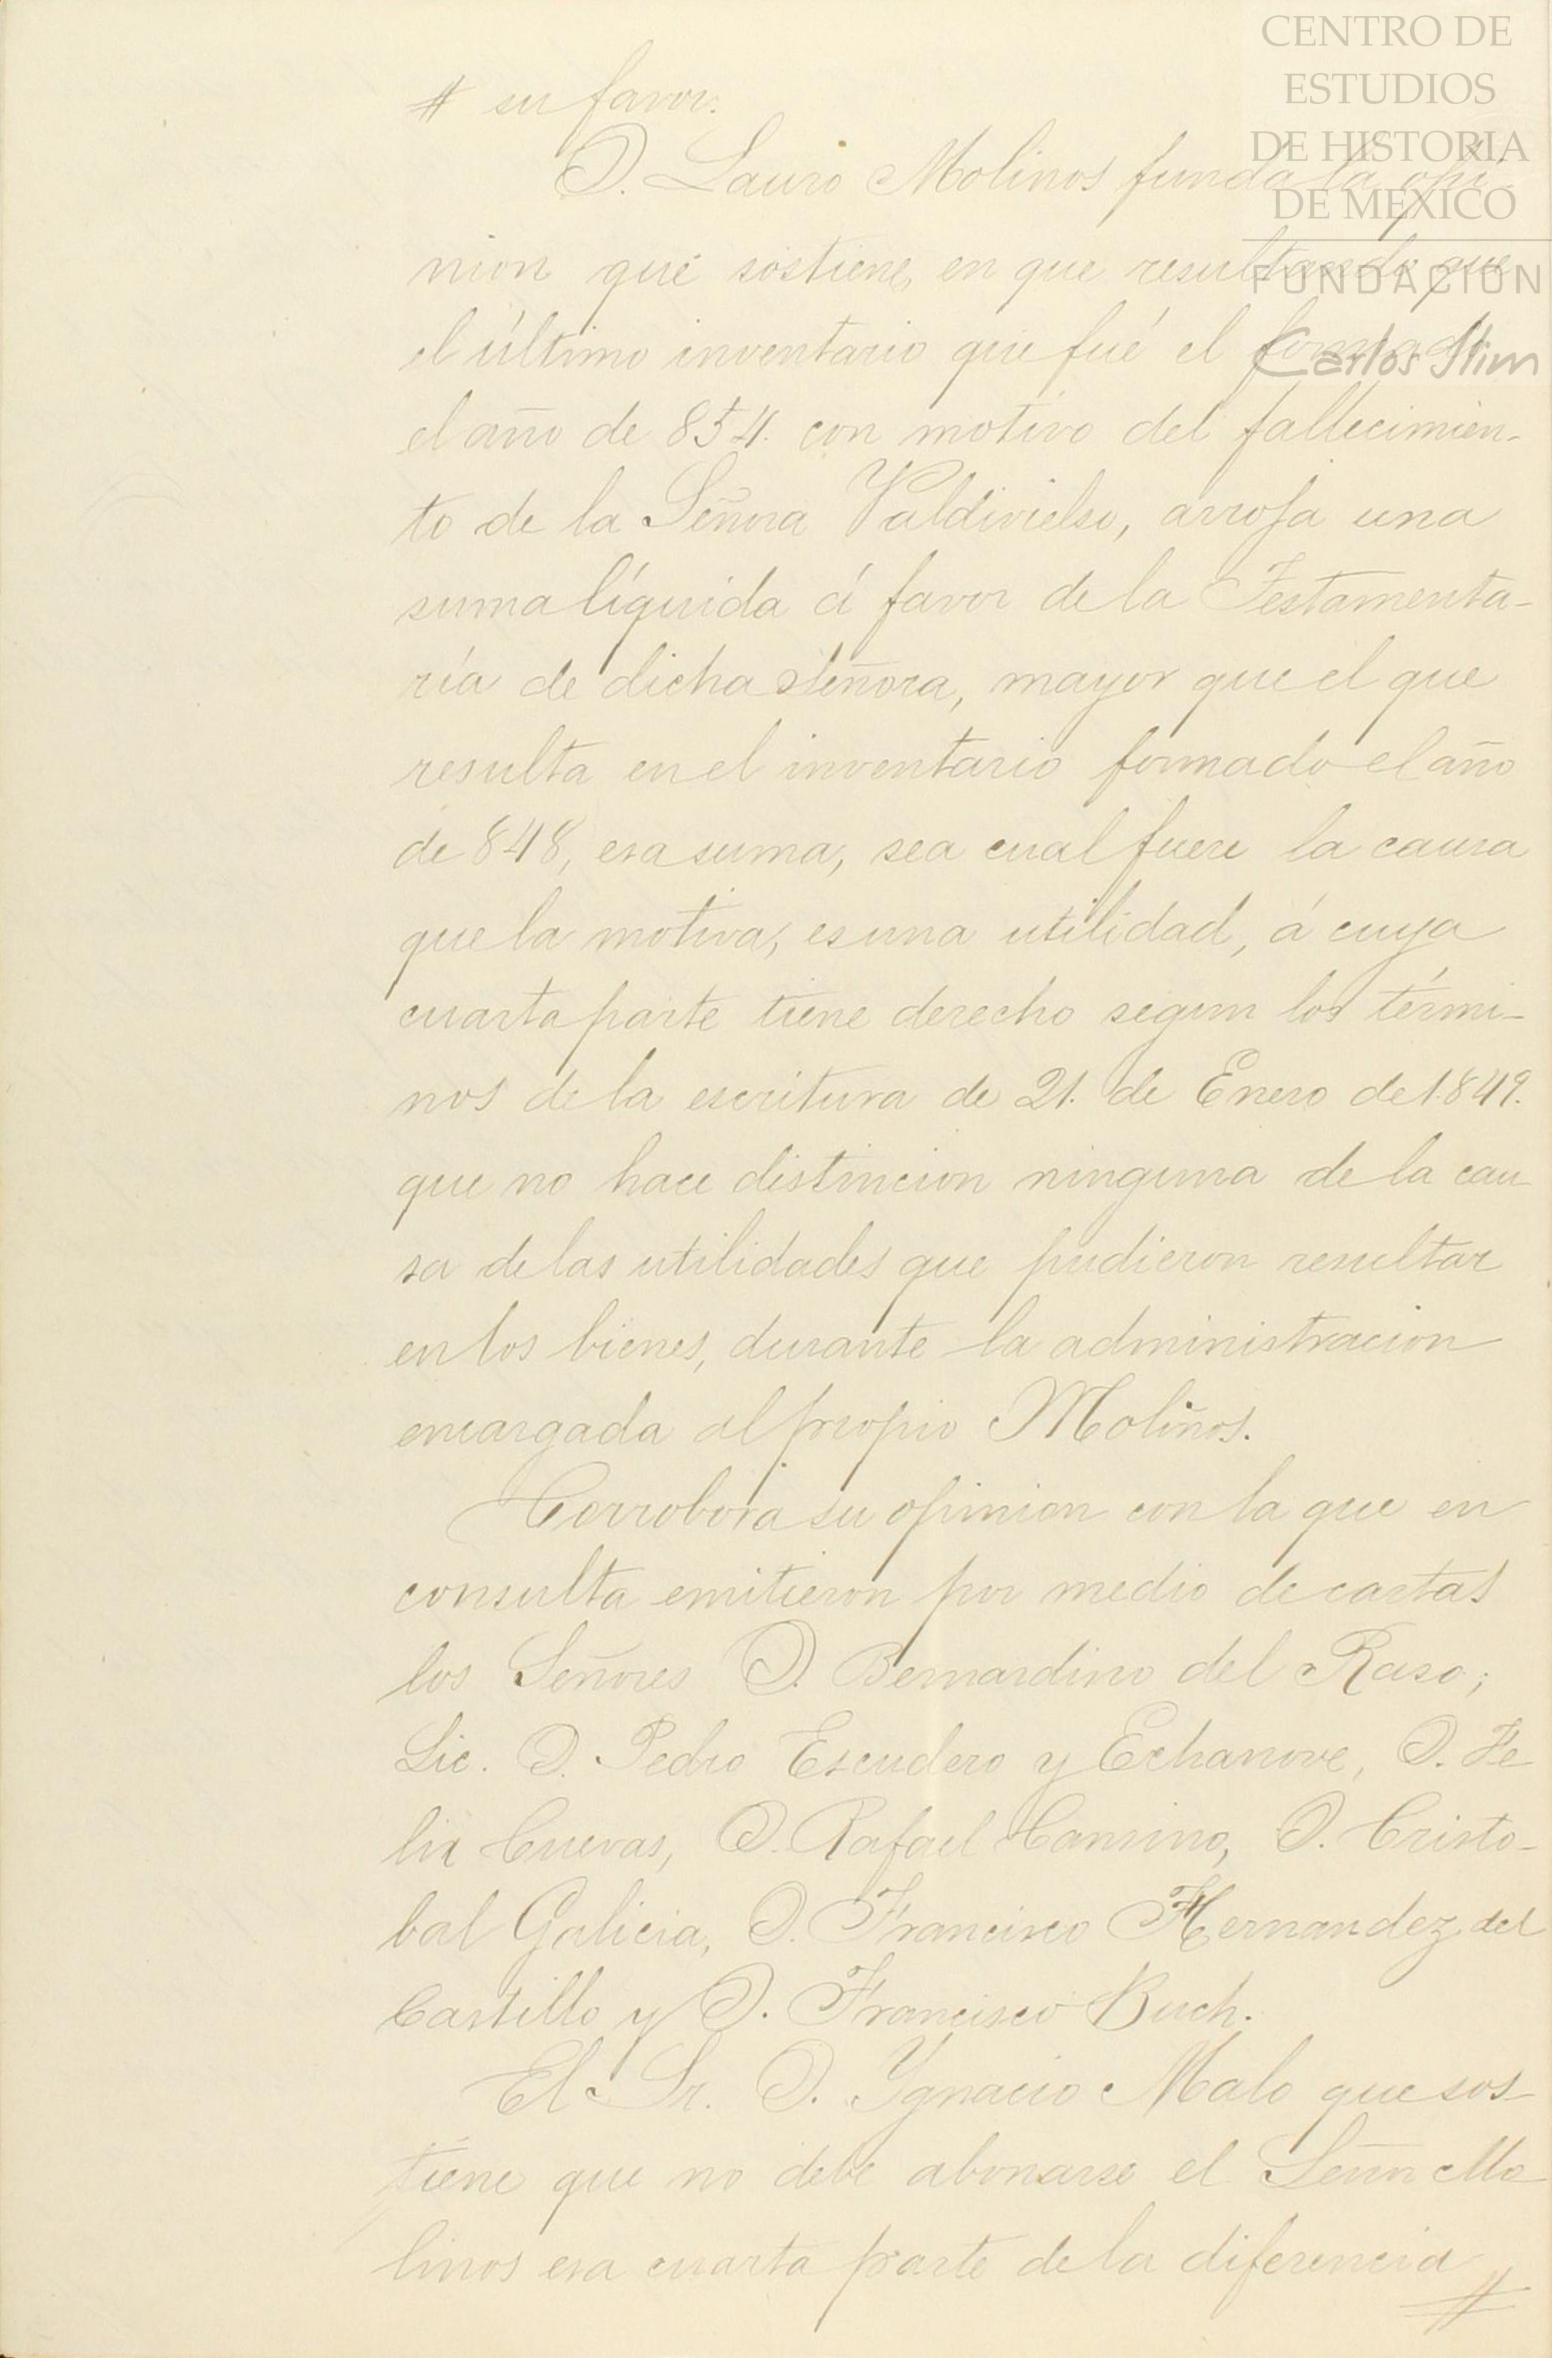 CENTRO DE
ESTUDIOS
DE HISTORIA
DE MEXICO
FUNDACION
Carlos Slim
# su favor.
D. Lauro Molinos funda la opi-
nion que sostiene, en que resultando que
el último inventario que fué el formado
el año de 854. con motivo del fallecimien-
to de la Señora Valdivielso, arroja una
suma líquida á favor de la Testamenta-
ría de dicha Señora, mayor que el que
resulta en el inventario formado el año
de 848, esa suma, sea cual fuere la causa
que la motiva, es una utilidad, á cuya
cuarta parte tiene derecho segun los térmi-
nos de la escritura de 21. de Enero de 1.849.
que no hace distincion ninguna de la cau
sa de las utilidades que pudieron resultar
en los bienes, durante la administracion
encargada al propio Moliños.
Corrobora su opinion con la que en
consulta emitieron por medio de cartas
los Señores D. Bernardino del Raso;
Lic. D. Pedro Escudero y Echanove, D. Fe
lix Cuevas, D. Rafael Cansino, D. Cristo-
bal Galicia, D. Francisco Hernandez del
Castillo y D. Francisco Buch.
El Sr. D. Ygnacio Malo que sos-
tiene que no debe abonarse el Señor Mo
linos esa cuarta parte de la diferencia #